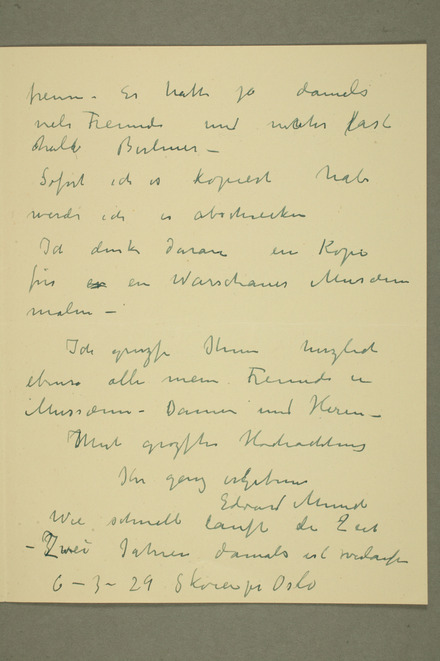 freun – Er hatte ja damals
viele Freunde und
Berliner –
Sofort ich es kopiert habe
werde ich es abschicken
Ich denke daran en Kopi
fürs en Warschauer Museum
malen –
Ich grusse Ihnen herzlich
ebenso alle mein Freunde in
Museum – Damen und Heren –
Mit Hochachtung
Ihr ganz
Edvard Munch
Wie schnell läuft die Zeit
– Zwei Jahren damals ist
6 – 3 – 29 Skøien pr Oslo